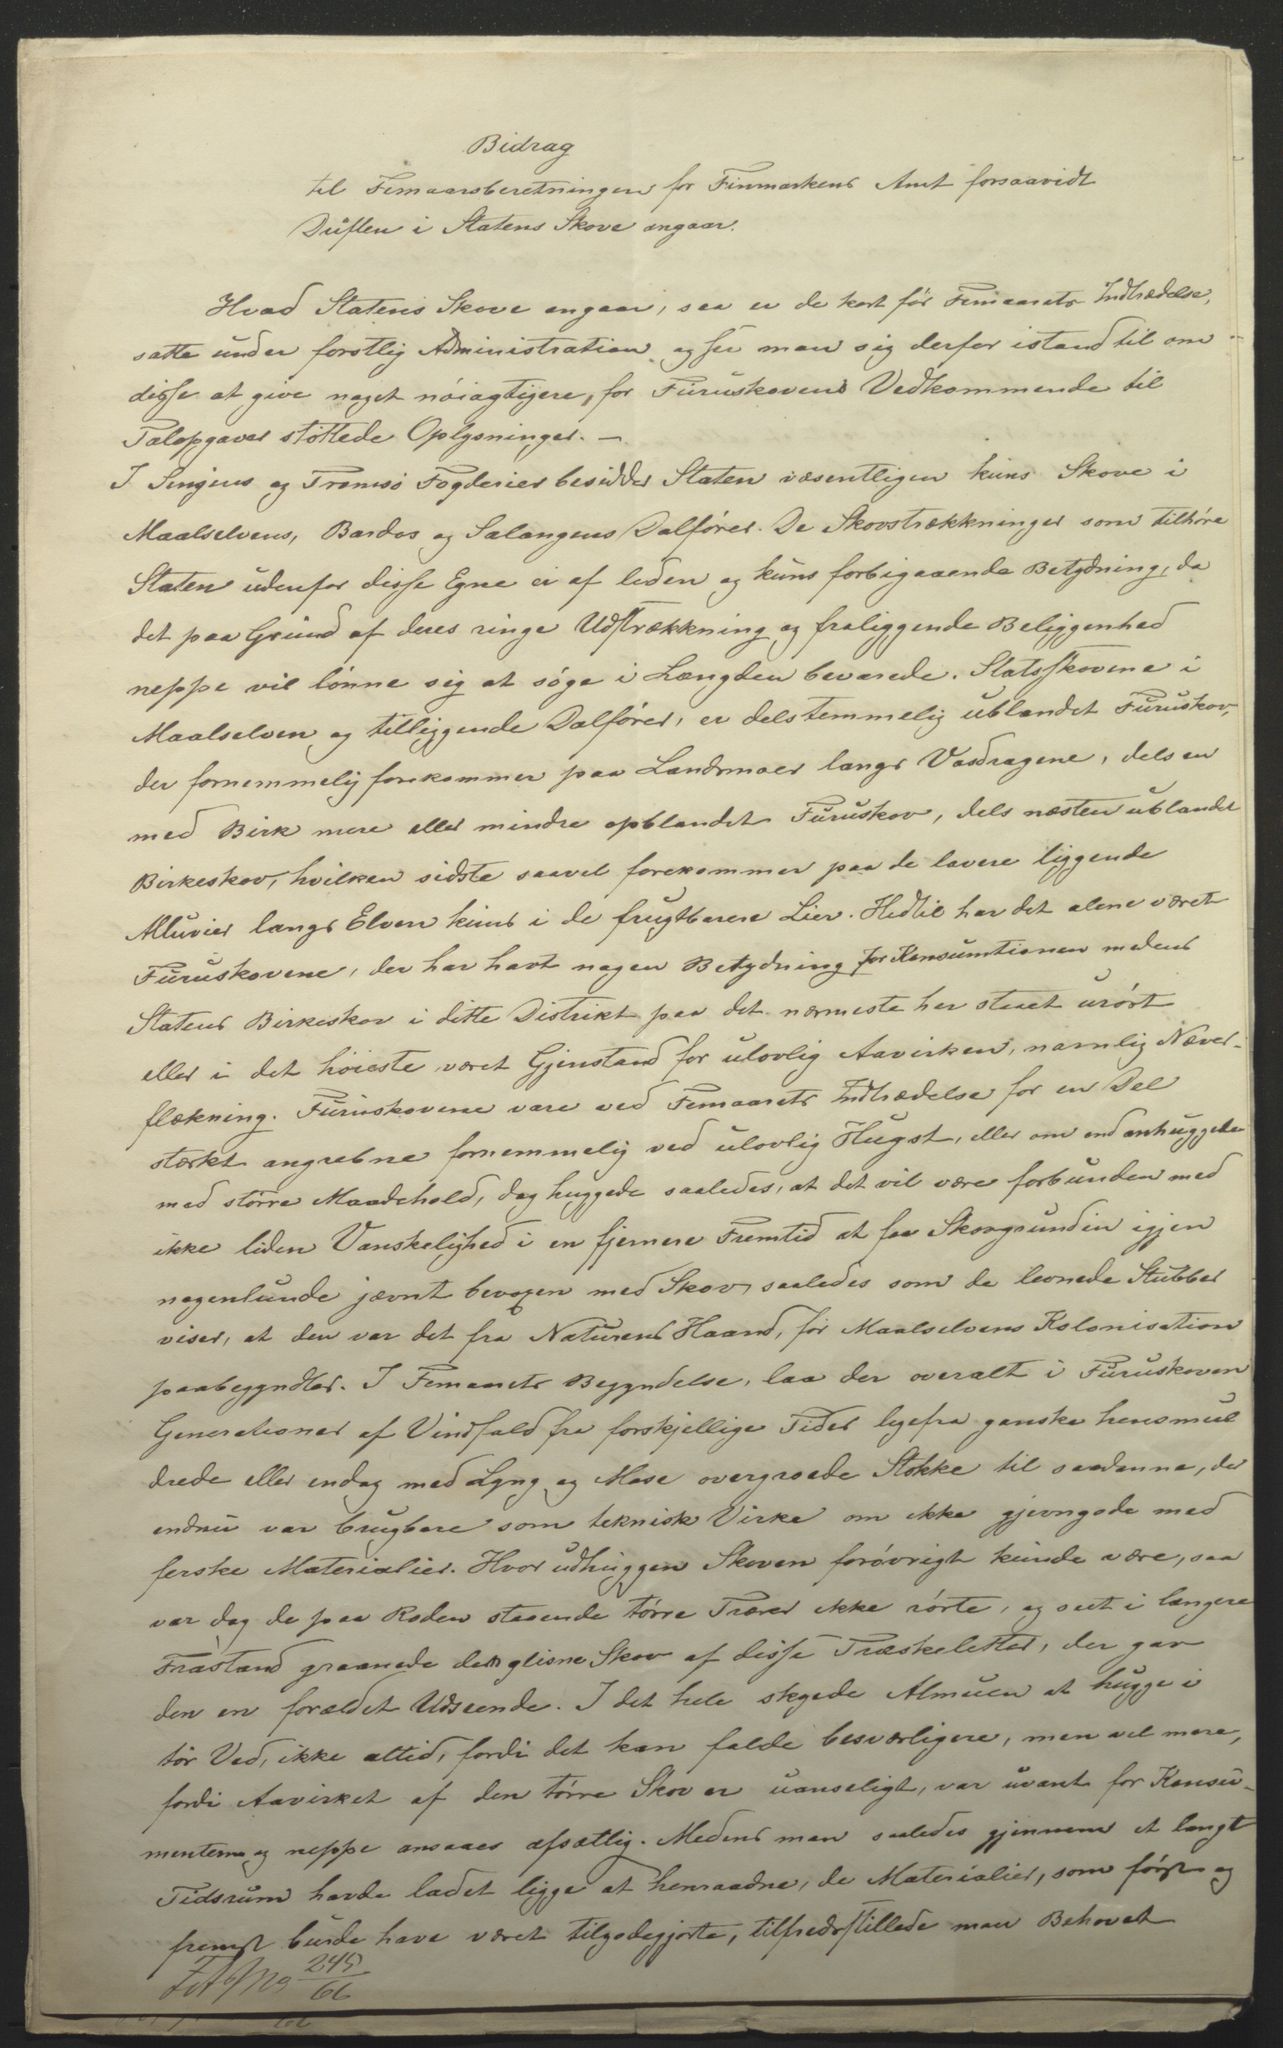 Bidrag
til Femaarsberetningen for Finmarkens Amt forsaavidt
Driften i Statens Skove angaar.
Hvad Statens Skove angaar, saa er de kort før Femaarets Indtrædelse,
satte under forstlig Administration og ser man sig derfor istand til om
disse at give noget nöiagtigere, for Furuskovens Vedkommende til
Talopgaver støttede Oplysninger. —
I Senjens og Tromsö Fogderier besidder Staten væsentligen kuns Skove i
Maalselvens, Bardos og Salangens Dalförer. De Skovstrækkninger som tilhöre
Staten udenfor disse Egne er af liden og kuns forbigaaende Betydning, da
det paa Grund af deres ringe Udstrækkning og fraliggende Beliggenhed
neppe vil lönne sig at söge i Længden bevarede. Statsskovene i
Maalselven og tilliggende Dalförer, er dels temmelig ublandet Furuskov,
der fornemmelig forekommer paa Landmoer langs Vasdragene, dels en
med Birk mere eller mindre opblandet Furuskov, dels næsten ublandet
Birkeskov, hvilken sidste saavel forekommer paa de lavere liggende
Alluvier langs Elven kuns i de frugtbarere Lier. Hidtil har det alene været
Furuskovene, der har havt nogen Betydning for Konsumtionen medens
Statens Birkeskov i dette Distrikt paa det nærmeste har staaet urört
eller i det höieste været Gjenstand for ulovlig Aavirken, navnlig Næver-
flækning. Furuskovene vare ved Femaarets Indtrædelse for en Del
stærkt angrebne fornemmelig ved ulovlig Hugst, eller om end anhuggede
med större Maadehold, dog huggede saaledes, at det vil være forbunden med
ikke liden Vanskelighed i en fjernere Fremtid at faa Skovgrunden igjen
nogenlunde jævnt bevoxen med Skov, saaledes som de levnede Stubber
viser, at den var det fra Naturens Haand, för Maalselvens Kolonisation
paabegyndtes. I Femaarets Begyndelse, laa der overalt i Furuskoven
Generationer af Vindfald fra forskjellige Tider ligefra ganske hensmul
drede eller endog med Lyng og Mose overgroede Stokke til saadanne, der
endnu var brugbare som teknisk Virke om ikke gjevngode med
ferske Materialier. Hvor udhuggen Skoven forövrigt kunde være, saa
var dog de paa Roden staaende törre Træer ikke rörte, og seet i længere
Frastand graanede den glisne Skov af disse Træskeletter, der gav
den en forældet Udseende. I det hele skyede Almuen at hugge i
tör Ved, ikke altid, fordi det kan falde besværligere, men vel mere,
fordi Aavirket af den törre Skov er uanseligt, var uvant for Konsu-
menterne og neppe ansaaes afsætlig. Medens man saaledes gjennem et langt
Tidsrum havde ladet ligge at henraadne, de Materialier, som först og
fremst burde have været tilgodegjorte, tilfredsstillede man Behovet
245
66